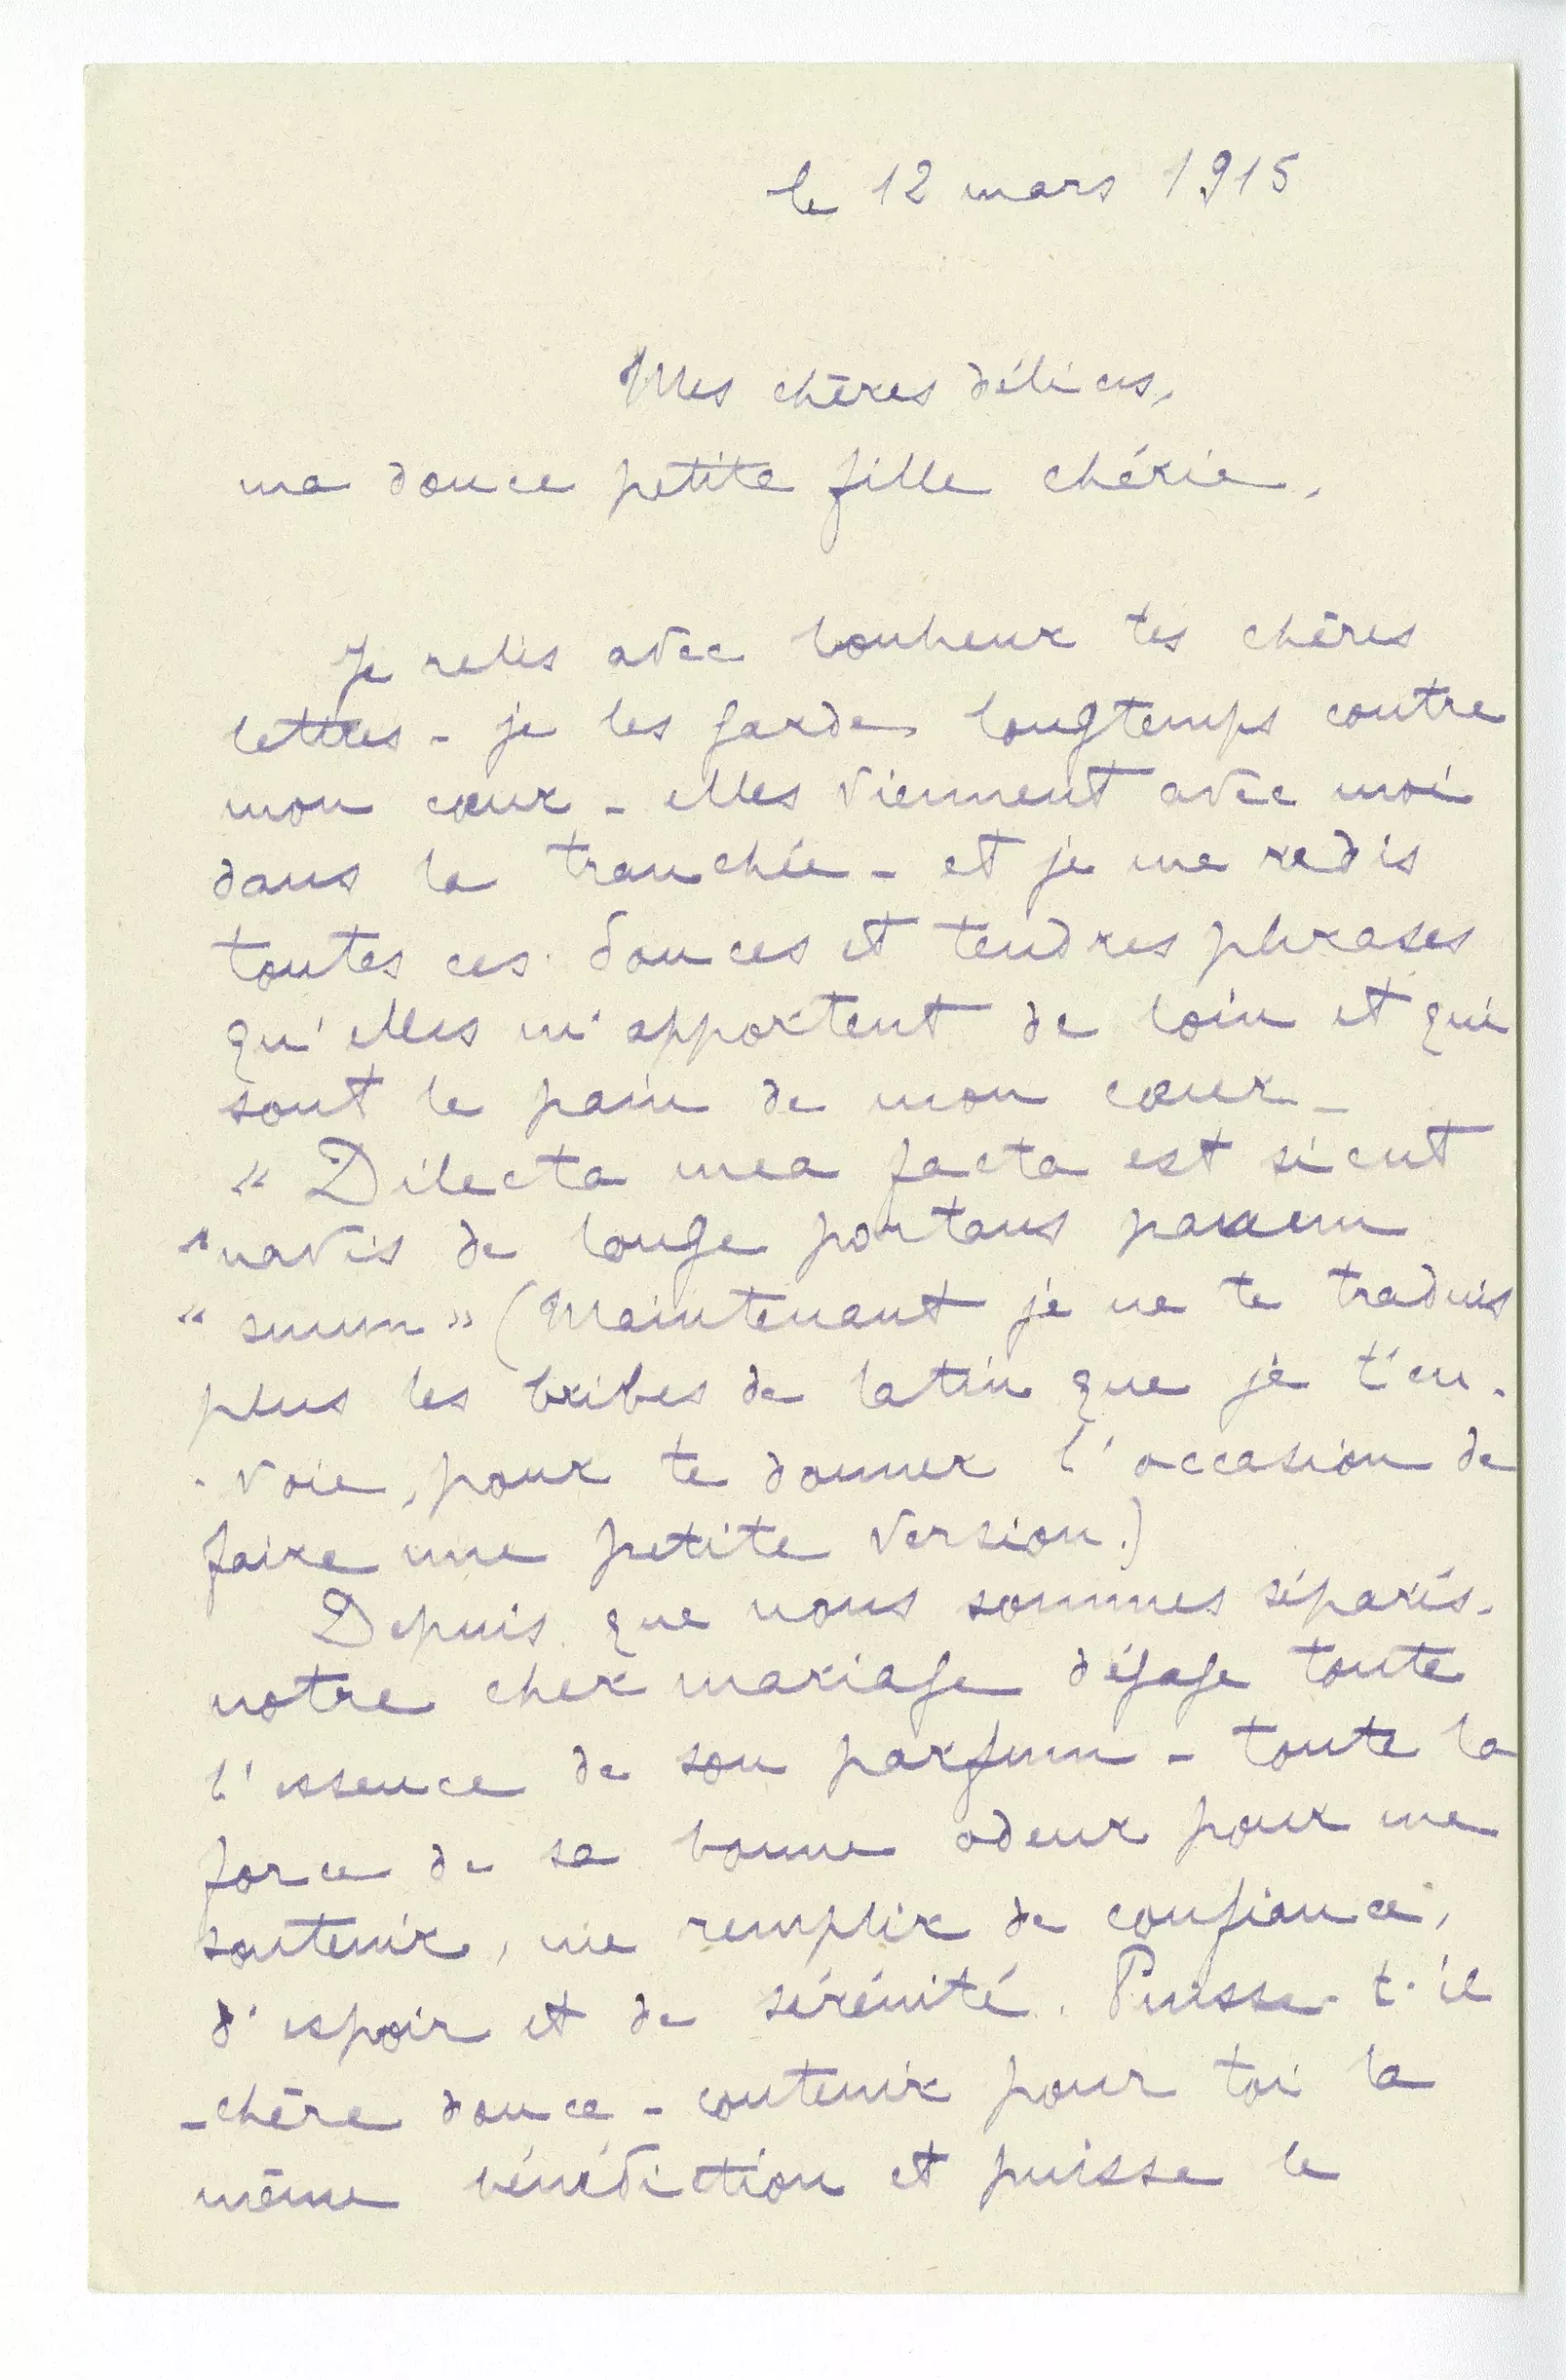 le 12 mars 1915
Mes chères délices,
ma douce petite fille chérie,
Je relis avec bonheur tes chères
lettres - je les garde longtemps contre
mon cœur - elles viennent avec moi
dans la tranchée - et je me redis
toutes ces douces et tendres phrases
qu'elles m'apportent de loin et qui
sont le pain de mon cœur -
" Dilecta mea facta est sicut
" navis de longe portans panem
" suum " (Maintenant je ne te traduis
plus les bribes de latin que je t'en-
-voie, pour te donner l'occasion de
faire une petite version.)
Depuis que nous sommes séparés,
notre cher mariage dégage toute
l'essence de son parfum - toute la
force de sa bonne odeur pour me
soutenir, me remplir de confiance,
d'espoir et de sérénité. Puisse-t-il
- chère douce - contenir pour toi la
même bénédiction et puisse le